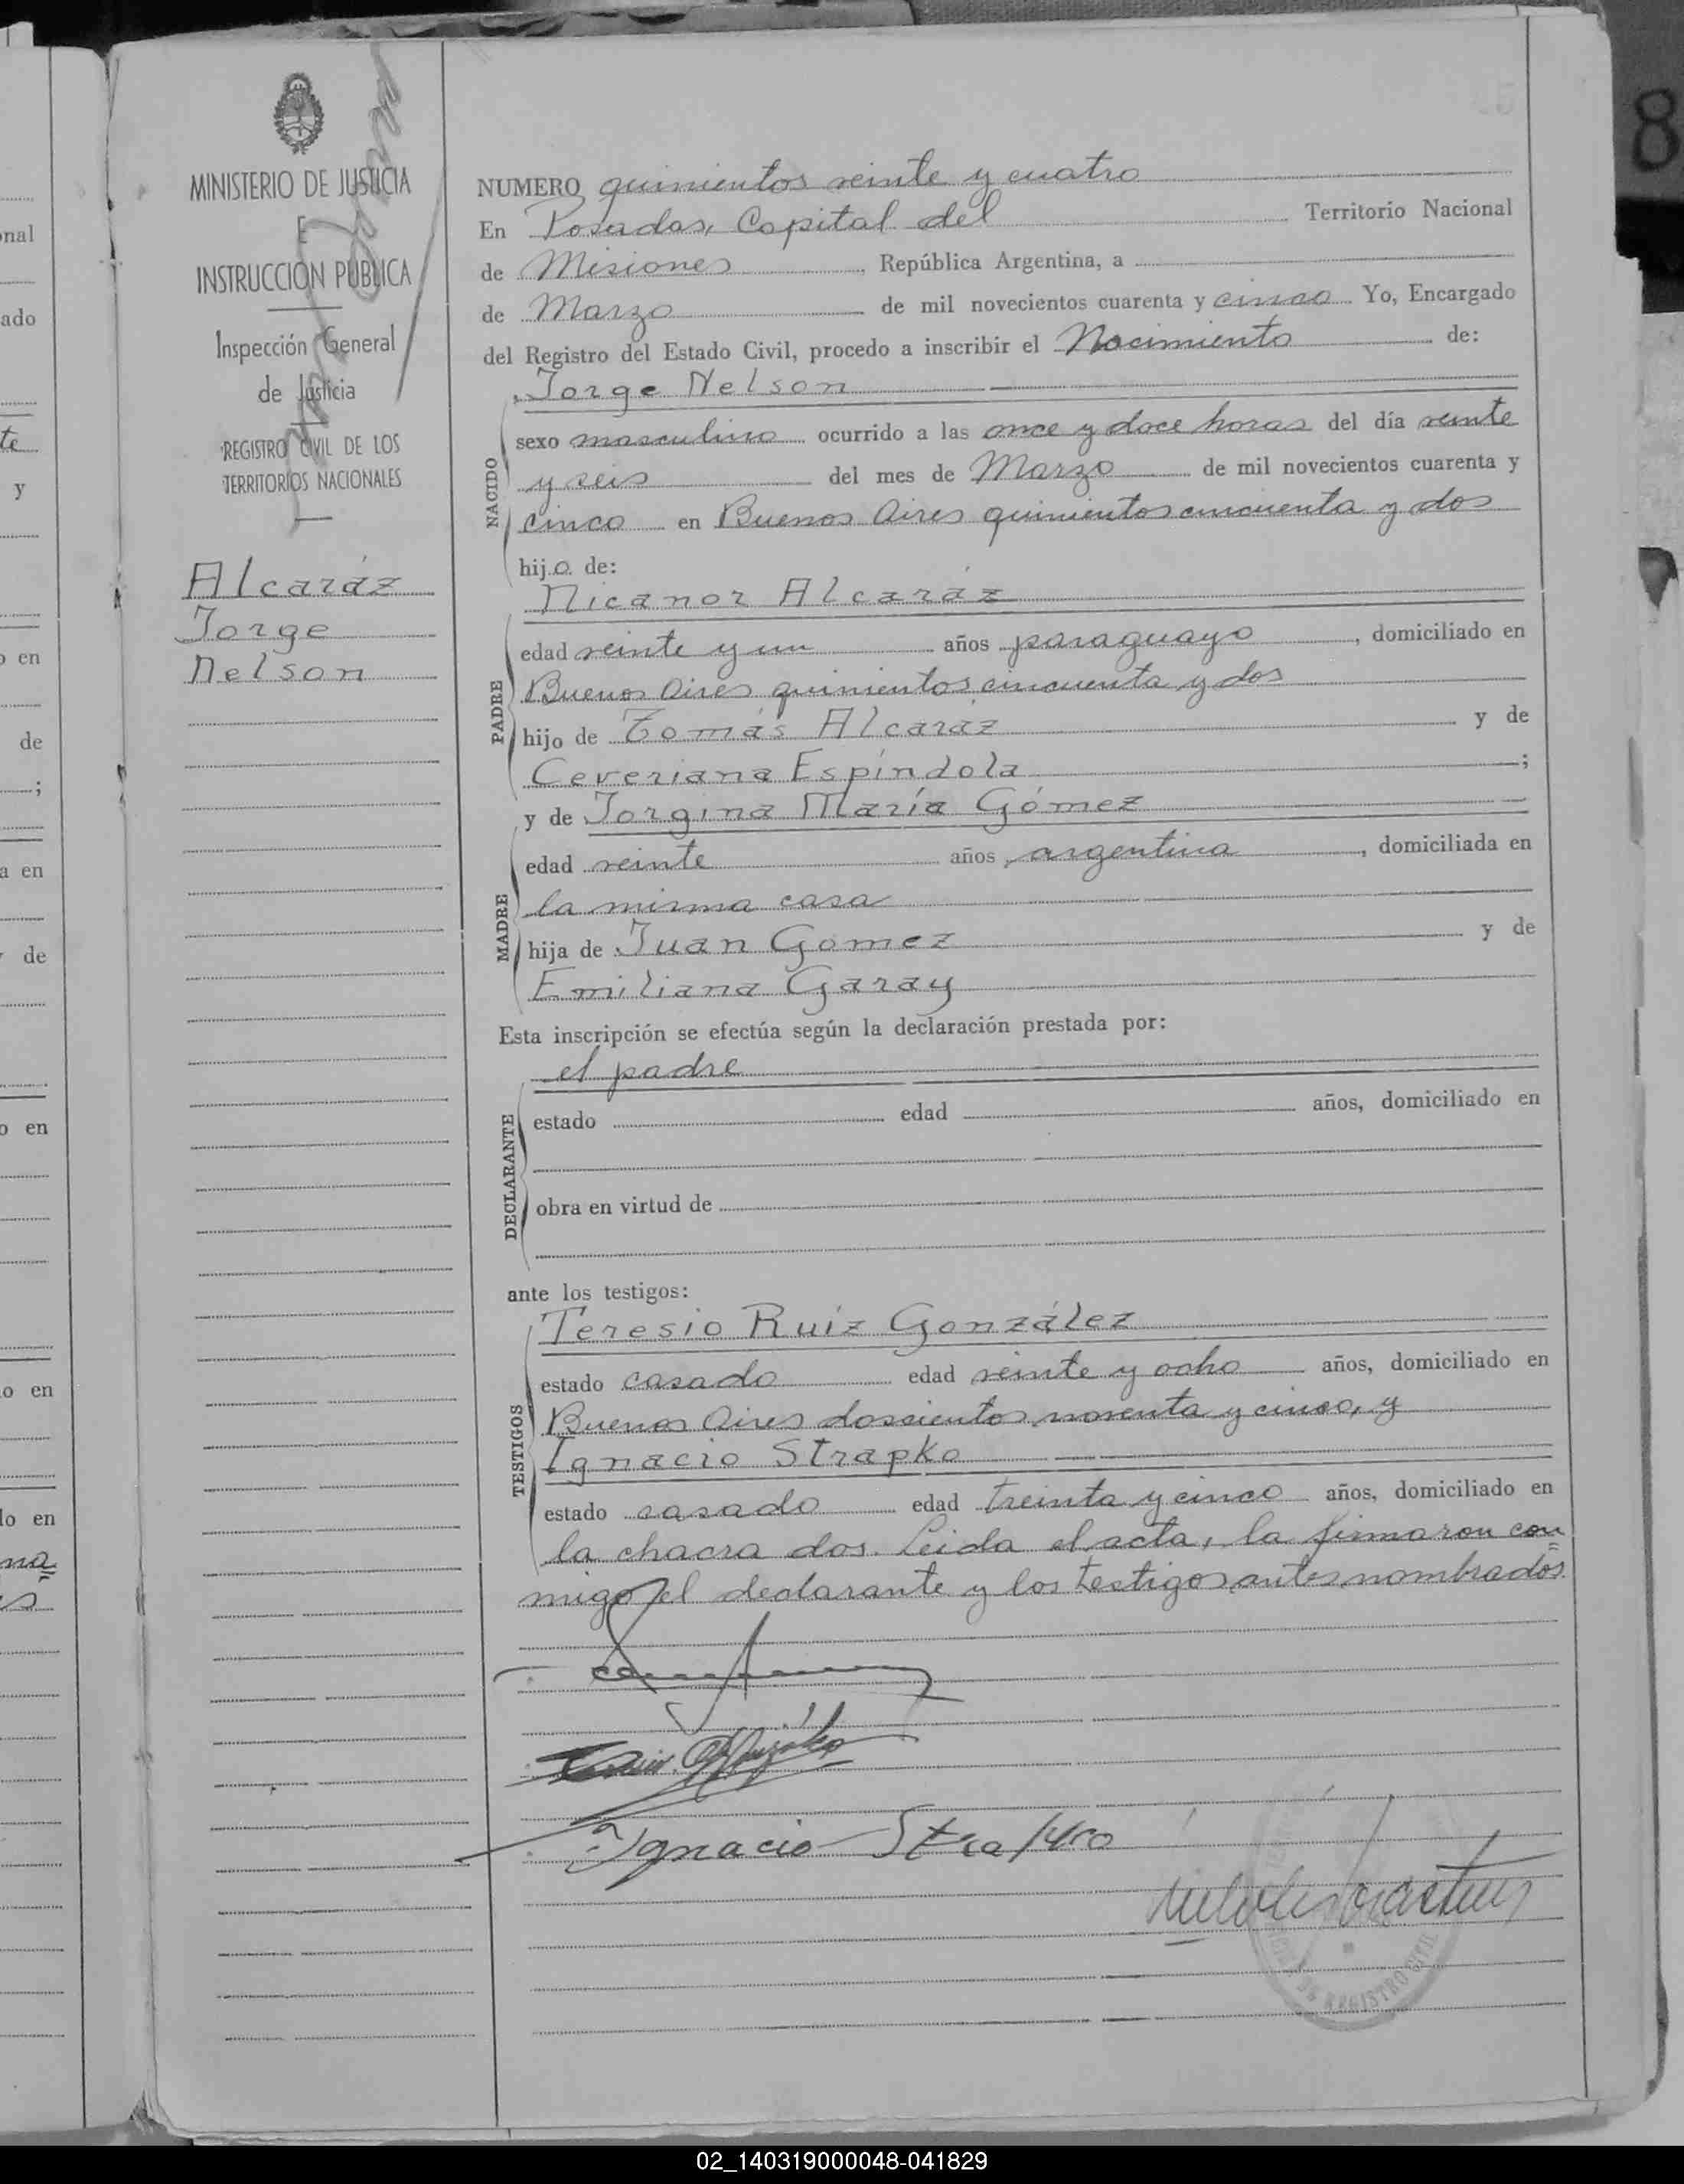 MINISTERIO DE JUSTICIA
E
INSTRUCCIÓN PÚBLICA
Inspección General
de Justicia
REGISTRO CIVIL DE LOS
TERRITORIOS NACIONALES
Alcaráz
Jorge
Nelson
NUMERO quinientos veinte y cuatro
En Posadas, Capital del Territorio Nacional
de Misiones, República Argentina, a
de Marzo de mil novecientos cuarenta y cinco Yo, Encargado
del Registro del Estado Civil, procedo a inscribir el Nacimiento de:
Jorge Nelson
NACIDO
sexo masculino ocurrido a las once y doce horas del día veinte
y seis del mes de Marzo de mil novecientos cuarenta y
cinco en Buenos Aires quinientos cincuenta y dos
hijo de:
Nicanor Alcaráz
PADRE
edad veinte y un años paraguayo, domiciliado en
Buenos Aires quinientos cincuenta y dos
hijo de Tomás Alcaráz y de
Ceveriana Espíndola;
y de Jorgina María Gómez
MADRE
edad veinte años argentina, domiciliada en
la misma casa
hija de Juan Gomez y de
Emiliana Garay
Esta inscripción se efectúa según la declaración prestada por:
el padre
DECLARANTE
estado edad años, domiciliado en
obra en virtud de
ante los testigos:
Teresio Ruiz González
TESTIGOS
estado casado edad veinte y ocho años, domiciliado en
Buenos Aires doscientos noventa y cinco, y
Ignacio Strapko
estado casado edad treinta y cinco años, domiciliado en
la chacra dos. Leida el acta, la firmaron con=
migo el declarante y los testigos antes nombrados.
Ignacio Strapko
REGISTRO CIVIL
nal
ado
te
y
en
de
;
a en
de
o en
o en
do en
na=
8
02_140319000048-041829